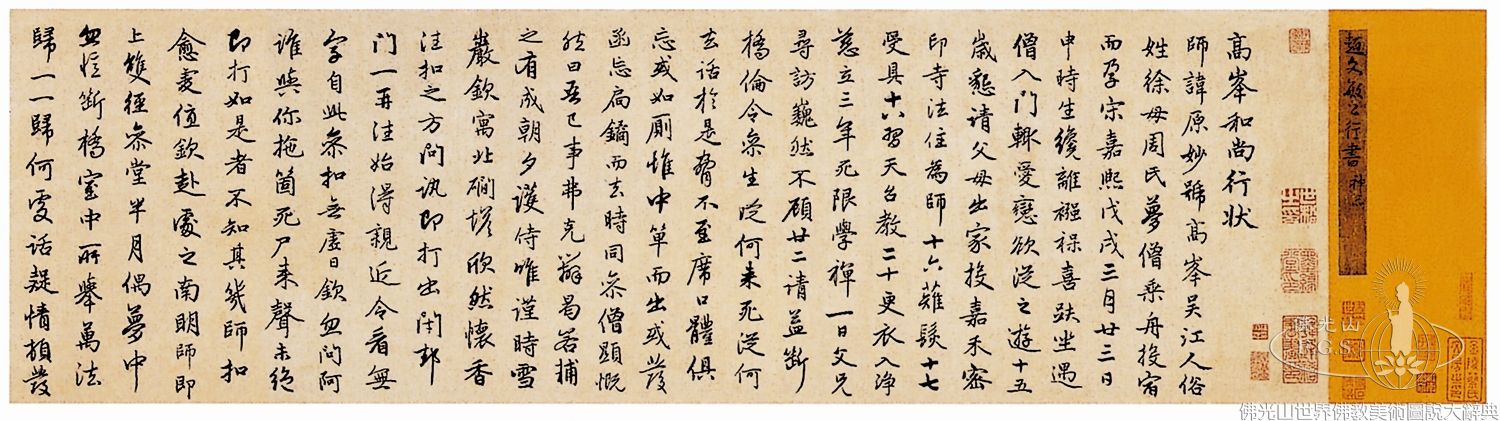 趙文敏公行書 神品
高峯和尚行状
師諱原妙號高峯吴江人俗
姓徐母周氏夢僧乘舟投宿
而孕宋嘉熙戊戌三月廿三日
申時生纔離襁褓喜趺坐遇
僧入門輒愛戀欲從之遊十五
歲懇請父母出家投嘉禾密
印寺法住為師十六薙髮十七
受具十八習天台教二十更衣入淨
慈立三年死限學禪一日父兄
尋訪巍然不顧廿二請益斷
橋倫令叅生從何来死從何
去話於是脅不至席口體俱
忘或如厠惟中單而出或發
函忘扃鐍而去時同叅僧顯慨
然曰吾已事弗克辦曷若捕
之有成朝夕護侍唯謹時雪
巖欽寓北磵塔欣然懷香
往扣之方問訊即打出閉却
門一再往始得親近令看無
字自此叅扣無虚日欽忽問阿
誰與你拖箇死尸来聲未絶
即打如是者不知其幾師扣
愈虔值欽赴處之南明師即
上雙徑叅堂半月偶夢中
忽憶斷橋室中所舉萬法
歸一一歸何處話疑情頓發
佛光山
F.G.S.
佛光山世界佛教美術圖說大辭典